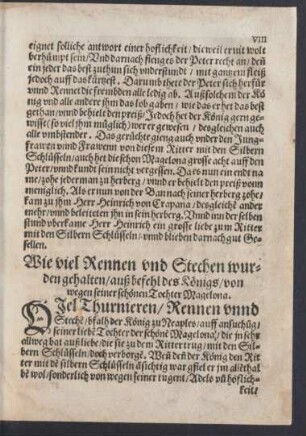 VIII
eignet solliche antwort einer hofflichkeit/ dieweil er nit wolt
verhümpt sein/ Vnd darnach fienge der Peter recht an/ deñ
ein jeder das best zuthun sich vnderstundt/ mit gantzem fleiß
jedoch auff das kürtzest. Darumb thete der Peter sich herfür
vnnd Rennet die frembden alle ledig ab. Auß solchem der Kö
nig vnd alle andere jhm das lob gaben/ wie das er het das best
gethan/ vnnd behielt den preiß/ Jedoch het der König gern ge-
wißt/ so viel jhm müglich/ wer er gewesen/ desgleichen auch
alle vmbstender. Das gerüchte gieng auch vnder den Jung-
frawen vnnd Frawenn von diesem Ritter mit den Silbern
Schlüsseln/ auch het die schon Magelona grosse acht auff den
Peter/ vnnd kundt sein nicht vergessen. Da es nun ein endt na
me/ zohe jederman zu herberg/ vnnd er behielt den preiß wenn
meniglich. Als er nun von der Ban nach seiner herberg zohe/
kam zu jhm Herr Heinrich von Crapana/ desgleichẽ ander
mehr/ vnnd beleiteten jhn in sein herberg. Vnnd inn der selben
stund vberkame Herr Heinrich ein grosse liebe zum Ritter
mit den Silbern Schlüsseln/ vnnd blieben darnach gut Ge-
sellen.
Wie viel Rennen vnd Stechen wur-
den gehalten/ auß befehl des Königs/ von
wegen seiner schönen Tochter Magelona.
OJel Thurnieren/ Rennen vnnd
Stechẽ/ bfalh der König zu Neaples/ auff ansuchũg/
seiner liebẽ Tochter der schönẽ Magelona/ die jn sehr
allweg bat auß liebe/ die sie zu dem Ritter trug/ mit den Sil-
bern Schlüsseln/ doch verborgẽ. Weñ deñ der König den Rit
ter mit dẽ silbern Schlüsseln ãsichtig war gfiel er jm allẽthal
bẽ wol/ sonderlich von wegen seiner tugent/ Adels vñ höflich-
keit/